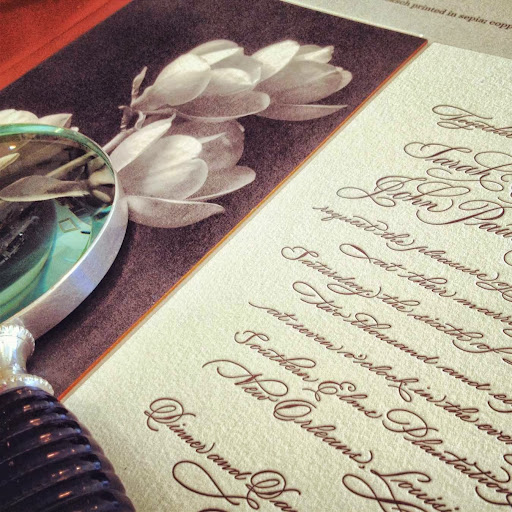 each printed in sepia; copp
Together
Sarah
John Pau
request the pleasure of
at their marri
Saturday the sixth of
two thousand and eig
o'clock in the even
Feather Elms Plantation
New Orleans, Louisi
Dinner and Dan